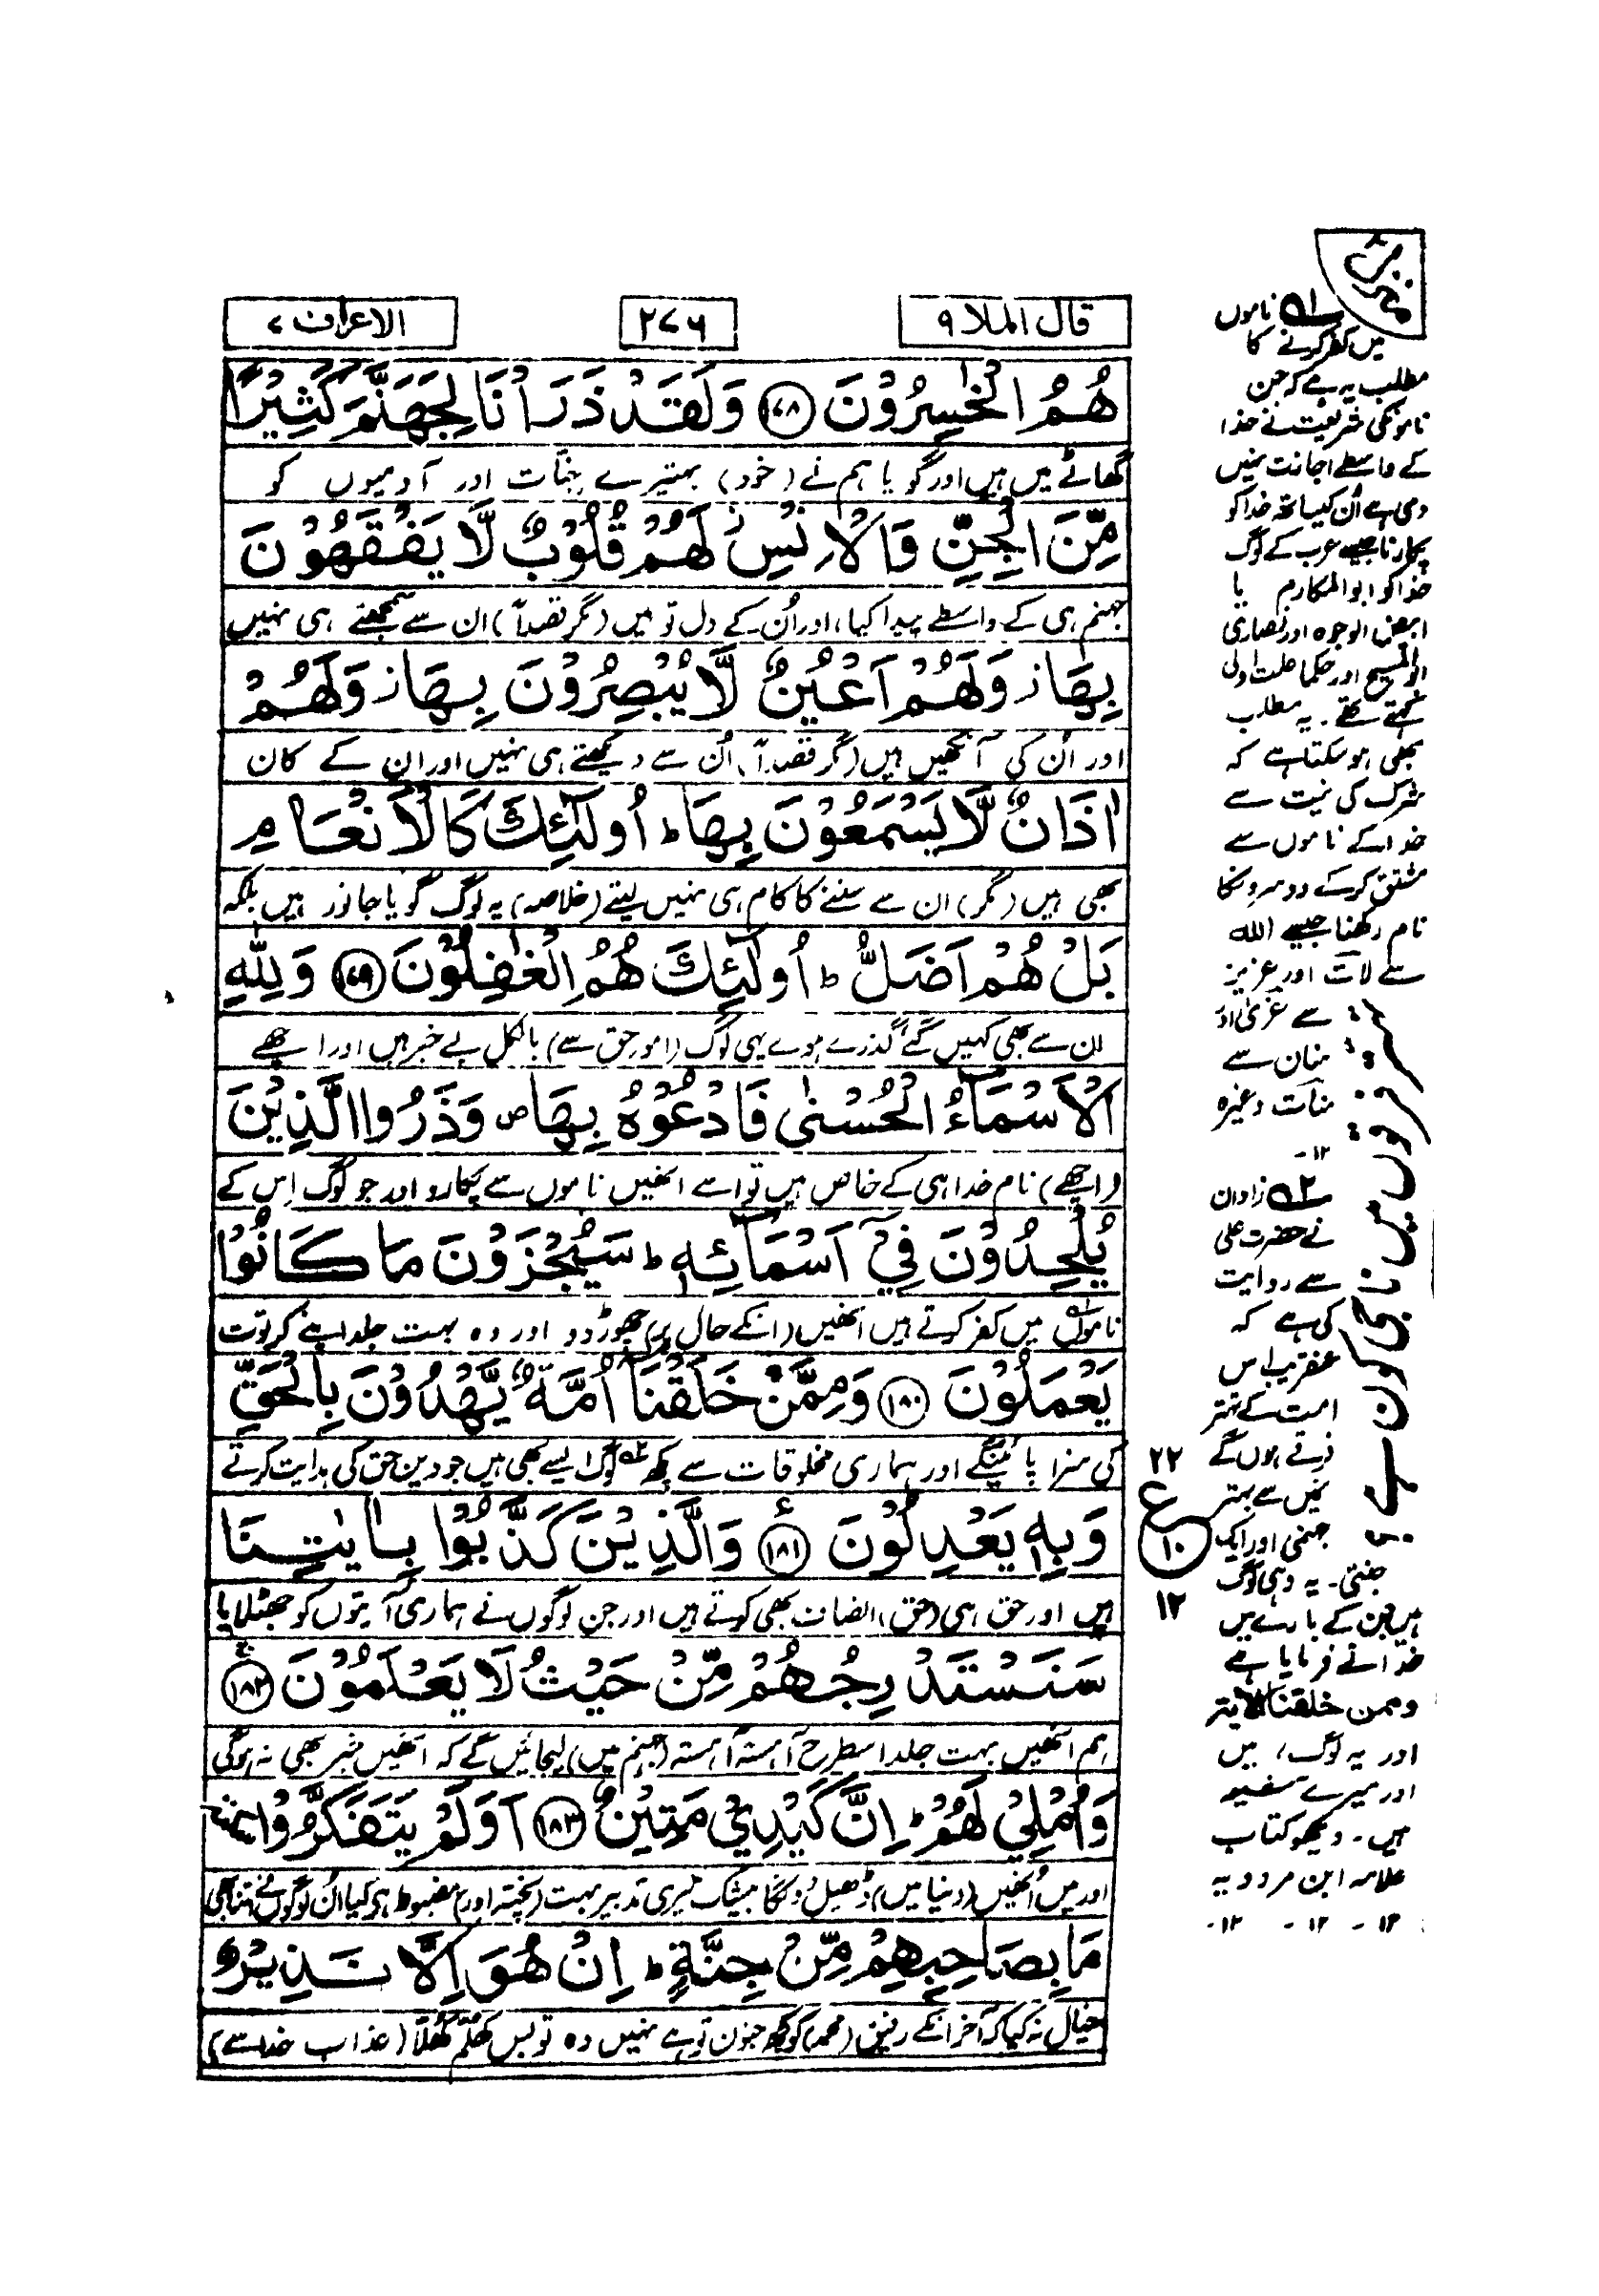 قال الملا ۹
۲۷۶
الاعراف ۷
هُمُ الْخٰسِرُوْنَ ﴿۱۷۸﴾ وَلَقَدْ ذَرَاْنَا لِجَهَنَّمَ كَثِيْرًا
گھاٹے میں ہیں اور گویا ہم نے (خود) بہتیرے جنّات اور آدمیوں کو
مِّنَ الْجِنِّ وَالْاِنْسِ لَهُمْ قُلُوْبٌ لَّا يَفْقَهُوْنَ
جہنم ہی کے واسطے پیدا کیا، اور اُن کے دل تو ہیں (مگر قصداً) ان سے سمجھتے ہی نہیں
بِهَا ز وَلَهُمْ اَعْيُنٌ لَّا يُبْصِرُوْنَ بِهَا ز وَلَهُمْ
اور اُن کی آنکھیں ہیں (مگر قصداً) اُن سے دیکھتے ہی نہیں اور ان کے کان
اٰذَانٌ لَّا يَسْمَعُوْنَ بِهَا ط اُولٰٓئِكَ كَالْاَنْعَامِ
بھی ہیں (مگر) ان سے سننے کا کام ہی نہیں لیتے (خلاصہ) یہ لوگ گویا جانور ہیں بلکہ
بَلْ هُمْ اَضَلُّ ط اُولٰٓئِكَ هُمُ الْغٰفِلُوْنَ ﴿۱۷۹﴾ وَلِلّٰهِ
ان سے بھی کہیں گئے گذرے ہوے یہی لوگ (امور حق سے) بالکل بے خبر ہیں اور اچھے
الْاَسْمَآءُ الْحُسْنٰى فَادْعُوْهُ بِهَا ص وَذَرُوا الَّذِيْنَ
(اچھے) نام خدا ہی کے خاص ہیں تو اسے انھیں ناموں سے پکارو اور جو لوگ اِس کے
يُلْحِدُوْنَ فِيْٓ اَسْمَآئِهٖ ط سَيُجْزَوْنَ مَا كَانُوْا
ناموں میں کفر کرتے ہیں انھیں (انکے حال پر) چھوڑ دو اور وہ بہت جلد اپنے کرتوت
يَعْمَلُوْنَ ﴿۱۸۰﴾ وَمِمَّنْ خَلَقْنَآ اُمَّةٌ يَّهْدُوْنَ بِالْحَقِّ
کی سزا پائینگے اور ہماری مخلوقات سے کچھ لوگ ایسے بھی ہیں جو دین حق کی ہدایت کرتے
وَبِهٖ يَعْدِلُوْنَ ﴿۱۸۱﴾ ع وَالَّذِيْنَ كَذَّبُوْا بِاٰيٰتِنَا
ہیں اور حق ہی (حق) انصاف بھی کرتے ہیں اور جن لوگوں نے ہماری آیتوں کو جھٹلایا
سَنَسْتَدْرِجُهُمْ مِّنْ حَيْثُ لَا يَعْلَمُوْنَ ﴿۱۸۲﴾
ہم انھیں بہت جلد اسطرح آہستہ آہستہ (جہنم میں) لیجائیں گے کہ انھیں خبر بھی نہ ہوگی
وَاُمْلِيْ لَهُمْ ط اِنَّ كَيْدِيْ مَتِيْنٌ ﴿۱۸۳﴾ اَوَلَمْ يَتَفَكَّرُوْا
اور میں اُنھیں (دنیا میں) ڈھیل دونگا بیشک میری تدبیر بہت (پختہ اور) مضبوط ہے کیا ان لوگوں نے اتنا بھی
مَا بِصَاحِبِهِمْ مِّنْ جِنَّةٍ ط اِنْ هُوَ اِلَّا نَذِيْرٌ
خیال نہ کیا کہ آخر انکے رفیق (محمد) کو کچھ جنون تو ہے نہیں وہ تو بس کھلم کھلا (عذاب خدا سے)
۲۲
ع
۱۰
۱۲
۱ ناموں
میں کفر کرنے کا
مطلب یہ ہے کہ جن
ناموں کی شریعت نے خدا
کے واسطے اجازت نہیں
دی ہے اُن کیساتھ خدا کو
پکارنا جیسے عرب کے لوگ
خدا کو ابو المکارم یا
ابیض الوجوہ اور نصاری
ابو المسیح اور حکما علت اولی
کہتے تھے۔ یہ مطلب
بھی ہو سکتا ہے کہ
شرک کی نیت سے
خدا کے ناموں سے
مشتق کرکے دوسرونکا
نام رکھنا جیسے اللہ
سے لات اور عزیز
سے عزیٰ اور
منان سے
منات وغیرہ
۱۲-
۲ زاذان
نے حضرت علی
سے روایت
کی ہے کہ
عنقریب اس
امت کے تہتر
فرقے ہوں گے
جنمیں سے بہتر
جہنمی اور ایک
جنتی۔ یہ وہی لوگ
ہیں جن کے بارے میں
خدا نے فرمایا ہے
وممن خلقنا الایۃ
اور یہ لوگ، میں
اور میرے شیعہ
ہیں۔ دیکھو کتاب
علامہ ابن مردویہ
۱۲ - ۱۲ - ۱۲-